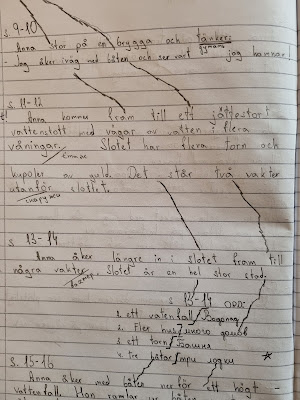 s. 9-10
Anna stor på en brygga och tänker:
думает
- Jag åker iväg med båten och ser vart jag hamnar!
s. 11-12
Anna kommer fram till ett jättestort
vattenslott med vågar av vatten i flera
våningar. Slotet har flera torn och
этаже
kupoler av guld. Det står två vakter
utanför slottet.
снаружи
s 13-14
Anna åker längre in i slotet fram till
några vakter. Slotet är en hel stor stad.
s 13-14 ОРД:
1. ett vatenfall/Водопад
2. Fler hus/много домов
3. ett torn/Башня
4. tre båtar/три лодки
s. 15-16
Anna åker med båten ner för ett högt
vattenfall. Hon ramlar ur båten